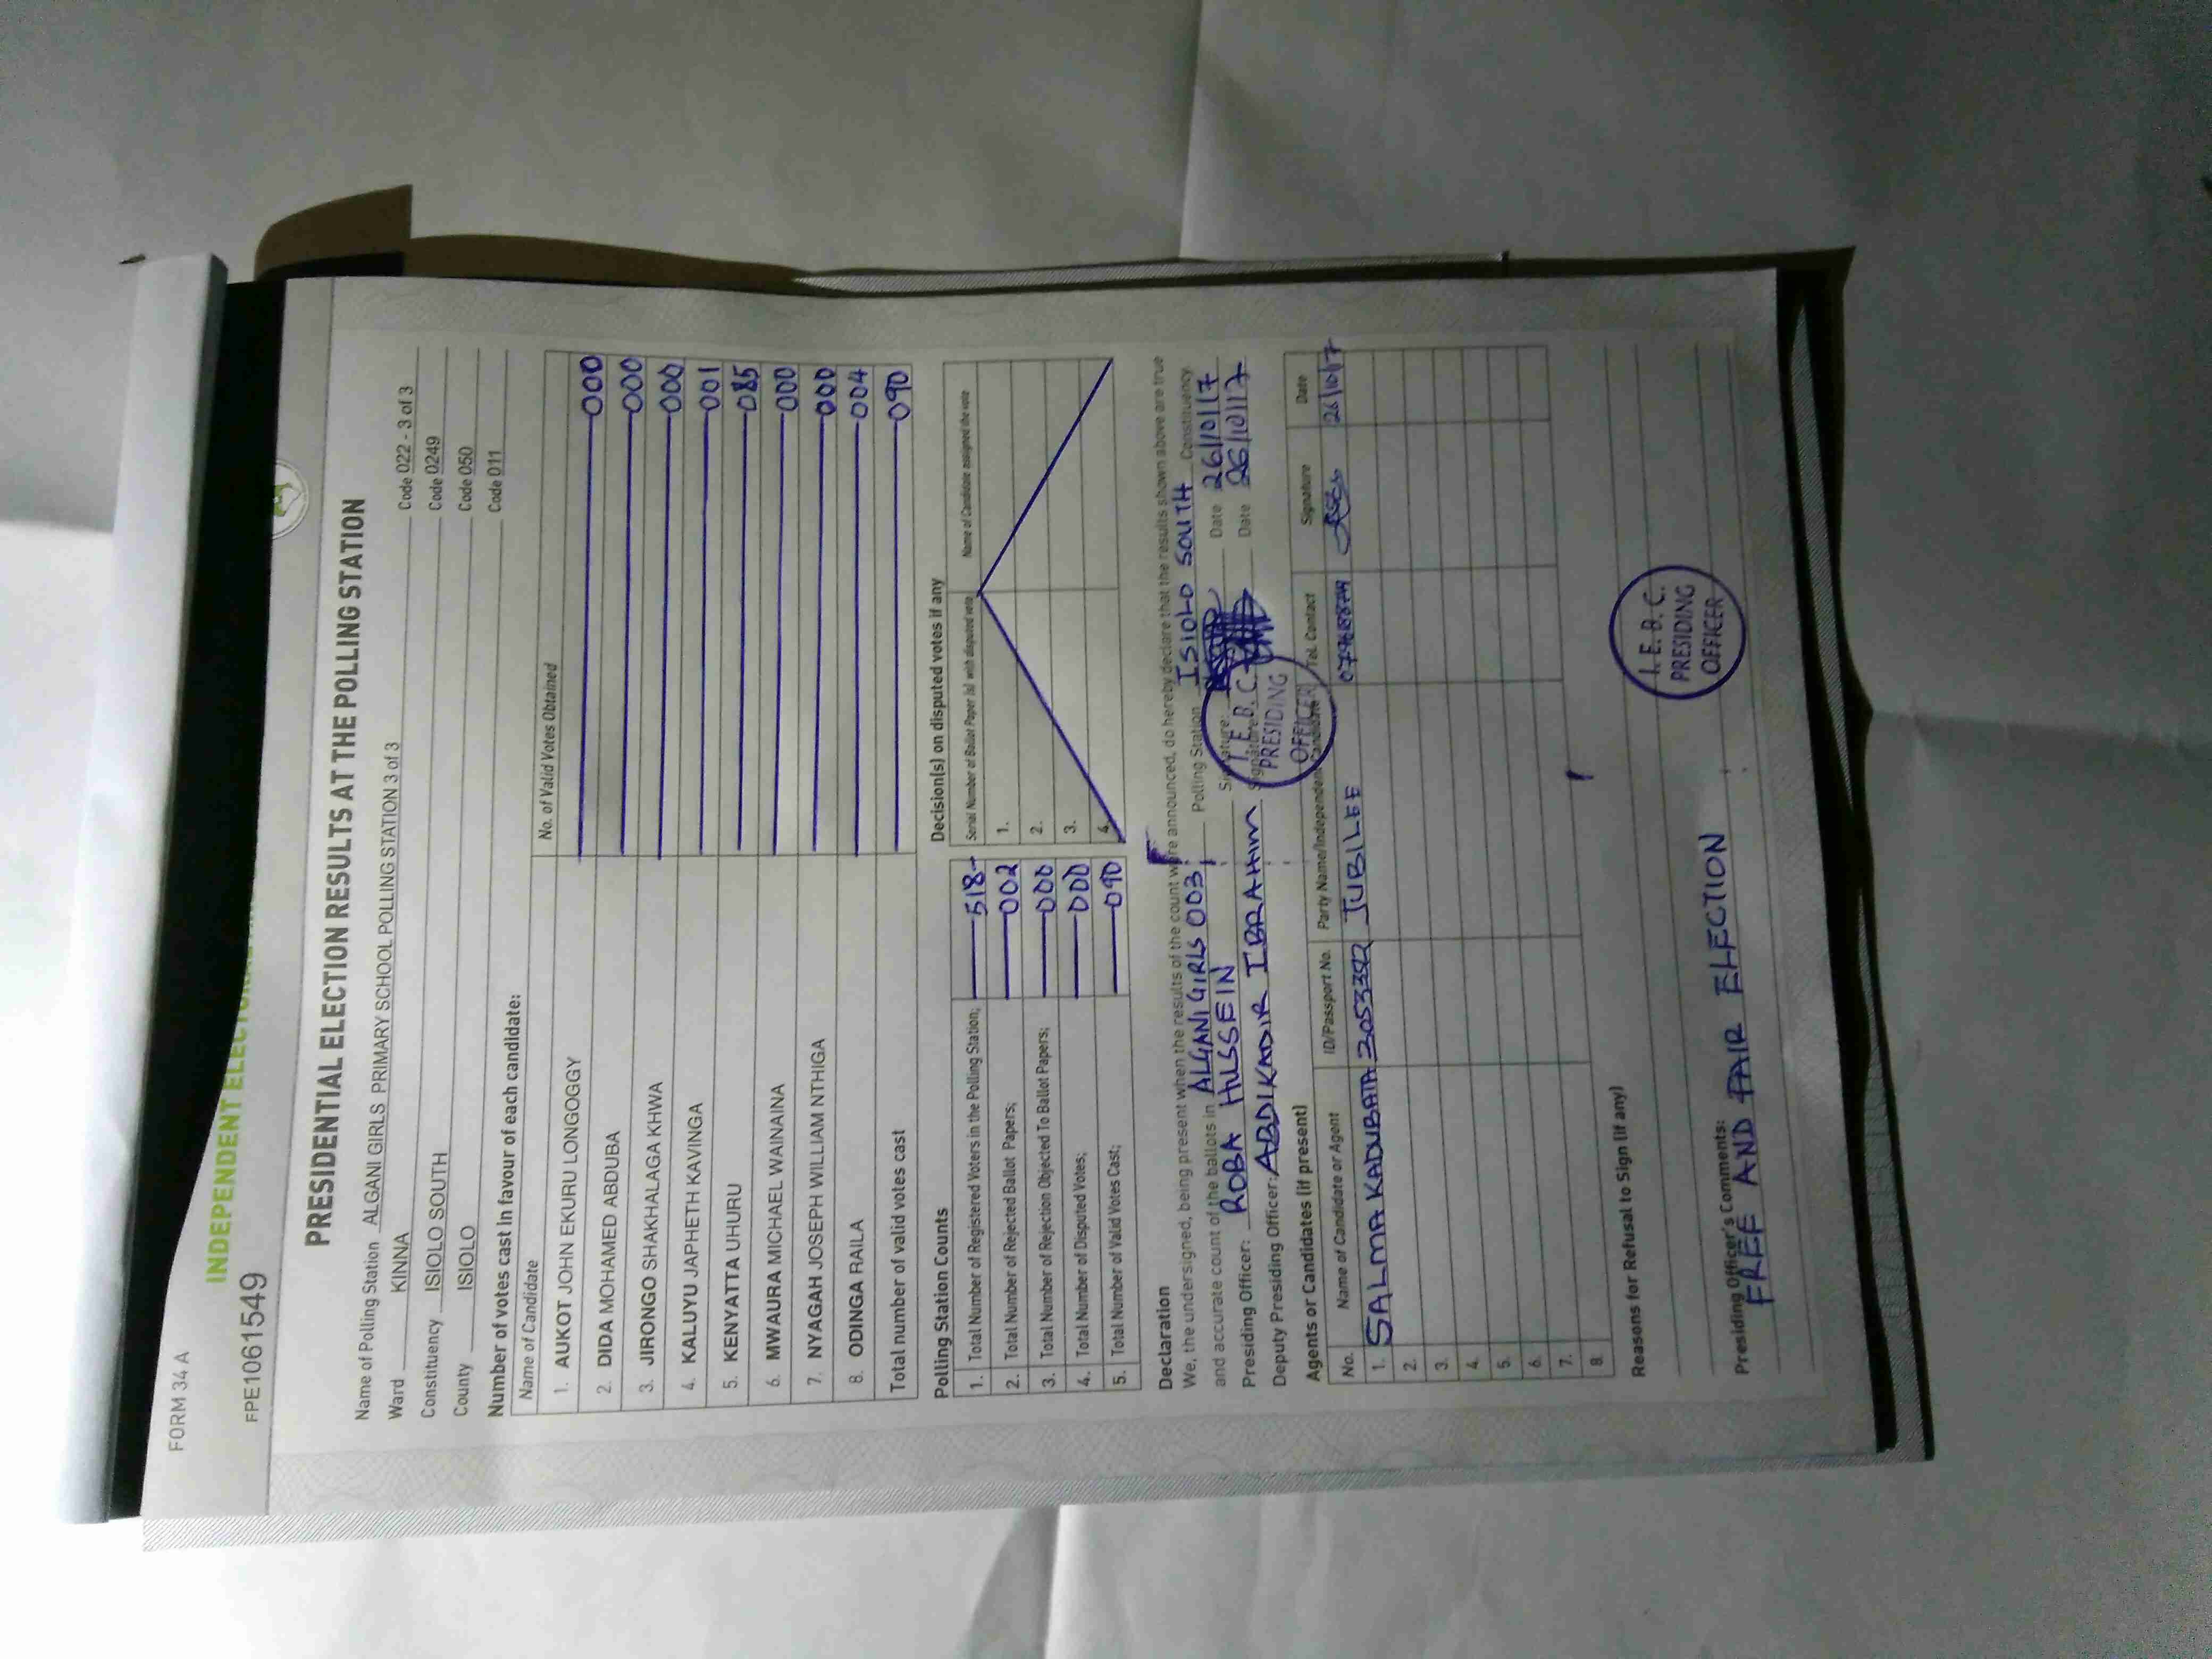 FORM 34 A
INDEPENDENT
FPE1061549
PRESIDENTIAL ELECTION RESULTS AT THE POLLING STATION
Name of Polling Station ALGANI GIRLS PRIMARY SCHOOL POLLING STATION 3 of 3 Code 022 - 3 of 3
Ward KINNA Code 0249
Constituency ISIOLO SOUTH Code 050
County ISIOLO Code 011
Number of votes cast in favour of each candidate:
Name of Candidate No. of Valid Votes Obtained
1. AUKOT JOHN EKURU LONGOGGY 000
2. DIDA MOHAMED ABDUBA 000
3. JIRONGO SHAKHALAGA KHWA 000
4. KALUYU JAPHETH KAVINGA 001
5. KENYATTA UHURU 085
6. MWAURA MICHAEL WAINAINA 000
7. NYAGAH JOSEPH WILLIAM NTHIGA 000
8. ODINGA RAILA 004
Total number of valid votes cast 090
Polling Station Counts
1. Total Number of Registered Voters in the Polling Station; 518
2. Total Number of Rejected Ballot Papers; 002
3. Total Number of Rejection Objected To Ballot Papers; 000
4. Total Number of Disputed Votes; 000
5. Total Number of Valid Votes Cast; 090
Decision(s) on disputed votes if any
Serial Number of Ballot Paper (s) with disputed vote Name of Candidate assigned the vote
1.
2.
3.
4.
Declaration
We, the undersigned, being present when the results of the count were announced, do hereby declare that the results shown above are true
and accurate count of the ballots in ALGANI GIRLS 003 Polling Station ISIOLO SOUTH Constituency
Presiding Officer: ROBA HUSSEIN Signature: Date 26/10/17
Deputy Presiding Officer: ABDIKADIR IBRAHIM Signature Date 26/10/17
I.E.B.C. PRESIDING OFFICER
Agents or Candidates (if present)
No. Name of Candidate or Agent ID/Passport No. Party Name/Independent Candidate Tel. Contact Signature Date
1. SALMA KADUBATA JUBILEE 26/10/17
2.
3.
4.
5.
6.
7.
8.
Reasons for Refusal to Sign (if any)
I.E.B.C.
PRESIDING
OFFICER
Presiding Officer's Comments:
FREE AND FAIR ELECTION